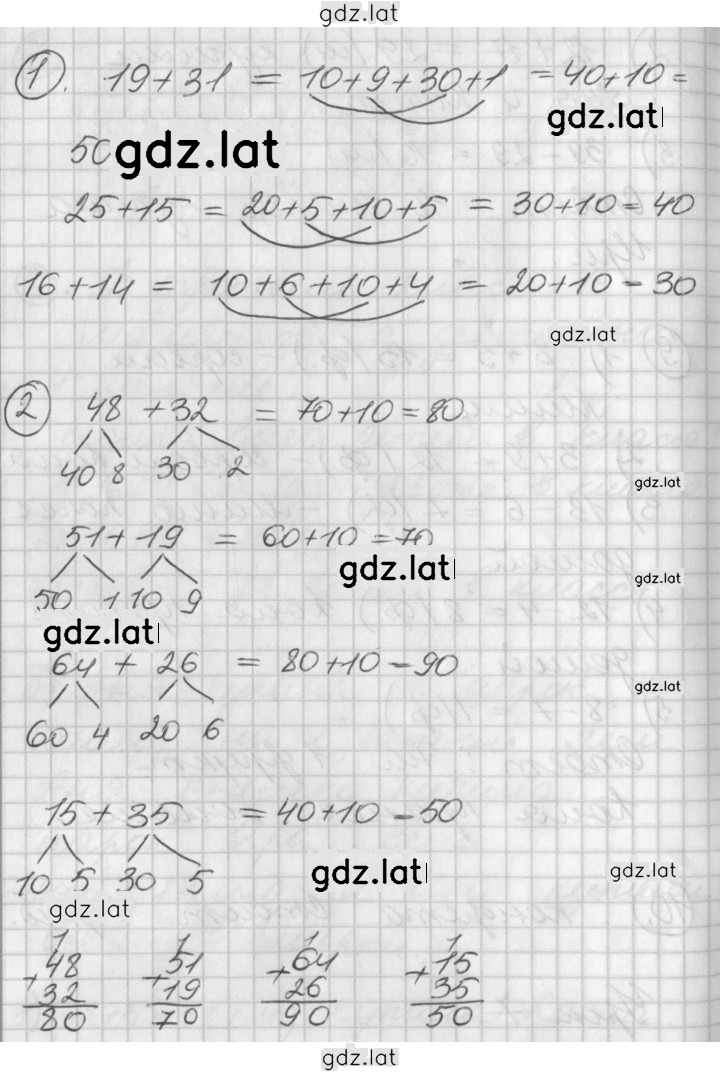 gdz.lat
1. 19+31 = 10+9+30+1 = 40+10 =
gdz.lat
50 gdz.lat
25+15 = 20+5+10+5 = 30+10=40
16+14 = 10+6+10+4 = 20+10-30
gdz.lat
2 48+32 = 70+10=80
40 8 30 2
gdz.lat
51+19 = 60+10=70
gdz.lat
gdz.lat
50 1 10 9
gdz.lat
64 + 26 = 80+10-90
gdz.lat
60 4 20 6
15+35 = 40+10-50
gdz.lat
gdz.lat
10 5 30 5
gdz.lat
1 1 1 1
+48 +51 +64 +15
32 19 26 35
80 70 90 50
gdz.lat